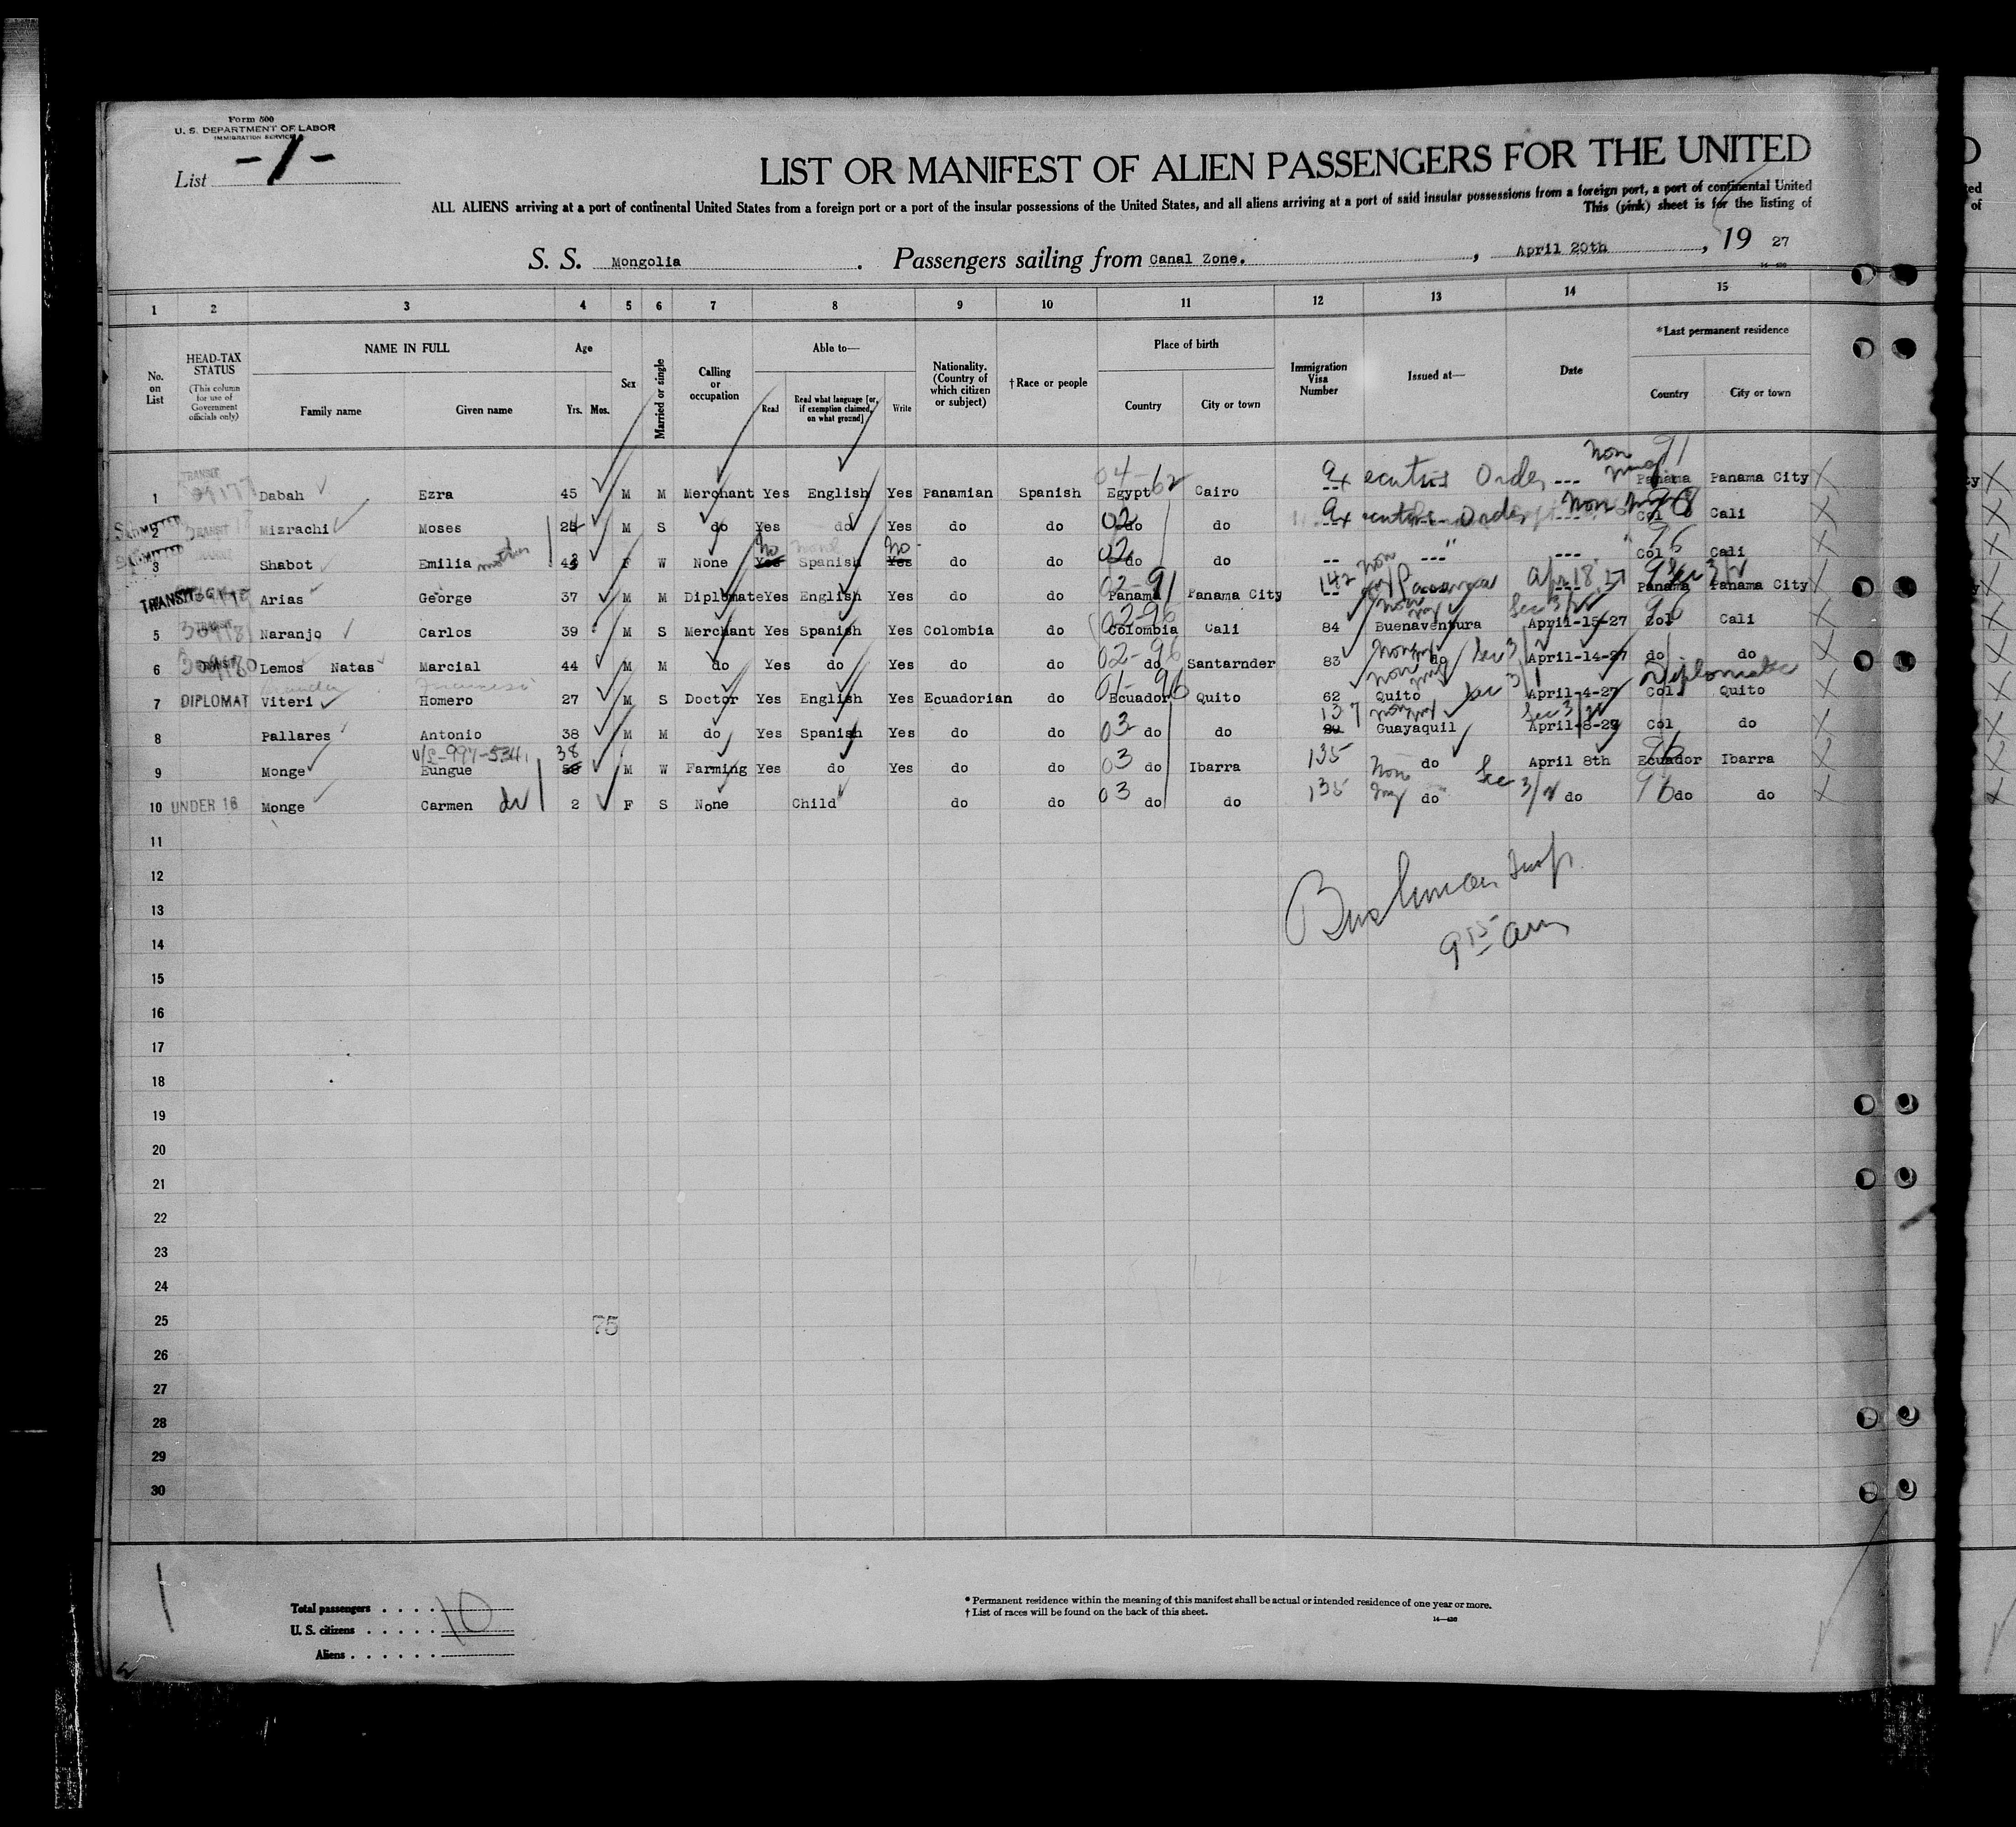 Form 500
U. S. DEPARTMENT OF LABOR
IMMIGRATION SERVICE
List -1-
LIST OR MANIFEST OF ALIEN PASSENGERS FOR THE UNITED
ALL ALIENS arriving at a port of continental United States from a foreign port or a port of the insular possessions of the United States, and all aliens arriving at a port of said insular possessions from a foreign port, a port of continental United
This (pink) sheet is for the listing of
S. S. Mongolia. Passengers sailing from Canal Zone., April 20th, 19 27
14-436
1 2 3 4 5 6 7 8 9 10 11 12 13 14 15
No. on List
HEAD-TAX STATUS (This column for use of Government officials only)
NAME IN FULL
Family name Given name
Age
Yrs. Mos.
Sex
Married or single
Calling or occupation
Able to—
Read
Read what language [or, if exemption claimed, on what ground]
Write
Nationality. (Country of which citizen or subject)
†Race or people
Place of birth
Country City or town
Immigration Visa Number
Issued at—
Date
*Last permanent residence
Country City or town
1 TRANSIT Dabah Ezra 45 M M Merchant Yes English Yes Panamian Spanish 04-62 Egypt Cairo -- Executive Order --- Non 91 Panama Panama City
2 TRANSIT Misrachi Moses 24 M S do Yes do Yes do do 02 do do -- Executive Order --- Non Col Cali
3 Shabot Emilia mother F W None No Yes Spanish No Yes do do 02 do do -- --- " --- " 96 Col Cali
4 TRANSIT Arias George 37 M M Diplomate Yes English Yes do do 02-91 Panama Panama City 142 Non Panama Apr 18, 27 Panama Sec 3/2 Panama City
5 TRANSIT Naranjo Carlos 39 M S Merchant Yes Spanish Yes Colombia do 02-96 Colombia Cali 84 Non Buenaventura Sec 3/2 April-15-27 96 Col Cali
6 TRANSIT Lemos Natas Marcial 44 M M do Yes do Yes do do 02-96 do Santarnder 83 Non do Sec 3/2 April-14-27 do do
7 DIPLOMAT Viteri Homero 27 M S Doctor Yes English Yes Ecuadorian do 01-96 Ecuador Quito 62 Non Quito Sec 3/1 April-4-27 Diplomatic Col Quito
8 Pallares Antonio 38 M M do Yes Spanish Yes do do 03 do do 137 Guayaquil Sec 3/2 April-8-27 Col do
9 Monge V/L-997-534, Eungue 38 M W Farming Yes do Yes do do 03 do Ibarra 135 do April 8th 96 Ecuador Ibarra
10 UNDER 16 Monge Carmen 2 F S None Child do do 03 do do 135 Non do Sec 3/2 do 96 do do
11
12
13
14
15
16
17
18
19
20
21
22
23
24
25
26
27
28
29
30
Bushman Insp.
9 15 am
75
Total passengers . . . . 10
U. S. citizens . . . . .
Aliens . . . . . .
* Permanent residence within the meaning of this manifest shall be actual or intended residence of one year or more.
† List of races will be found on the back of this sheet.
14-436